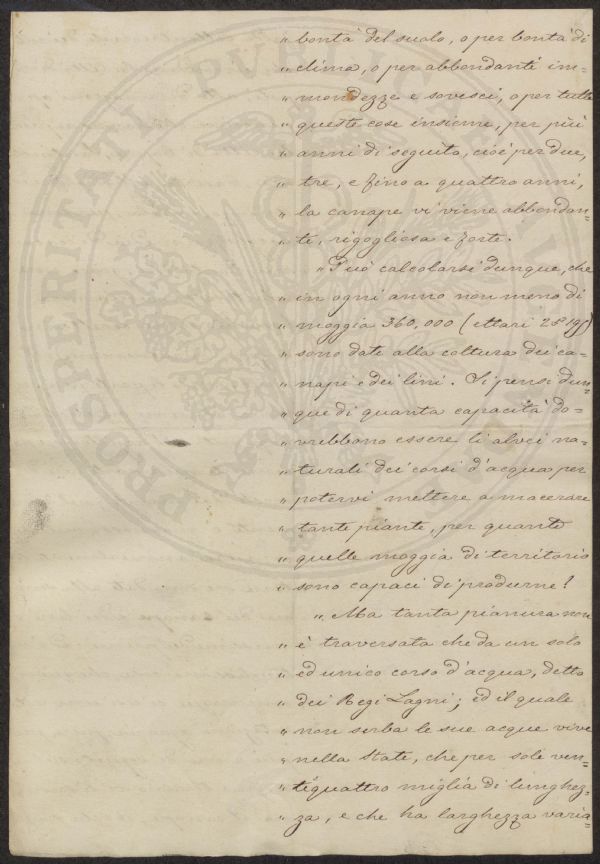 „ bontà del suolo, o per bontà di
„ clima, o per abbondanti im=
„ mondezze e sovesci, o per tutte
„ queste cose insieme, per più
„ anni di seguito, cioè per due,
„ tre, e fino a quattro anni,
„ la canape vi viene abbondan=
„ te, rigogliosa e forte.
„ Può calcolarsi dunque, che
„ in ogni anno non meno di
„ moggia 360,000 (ettari
„ sono dati alla coltura dei ca=
„ napi e dei lini. Si pensi dun=
„ que di quanta capacità do=
„ vrebbono essere li alvei na=
„ turali dei corsi d'acqua per
„ potervi mettere a macerare
„ tante piante, per quante
„ quelle moggia di territorio
„ sono capaci di produrne?
„ Ma tanta pianura non
„ è traversata che da un solo
„ ed unico corso d'acqua, detto
„ dei Regi Lagni; ed il quale
„ non serba le sue acque vive
„ nella state, che per sole ven=
„ tiquattro miglia di lunghez=
„ za, e che ha larghezza varia=
PROSPERITATI PV